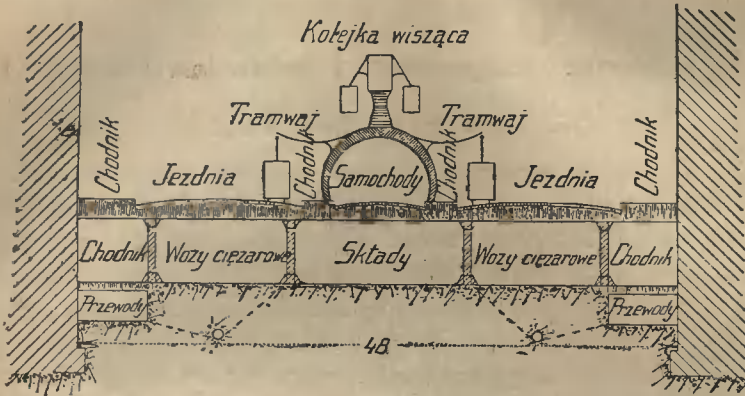 Kolejka wisząca
Tramwaj
Tramwaj
Chodnik
Jezdnia
Chodnik
Samochody
Chodnik
Jezdnia
Chodnik
Chodnik
Wozy ciężarowe
Składy
Wozy ciężarowe
Chodnik
Przewody
Przewody
48